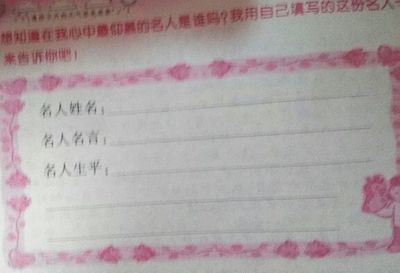 想知道在我心中最仰慕的名人是谁吗?我用自己填写的这份名人
来告诉你吧!
名人姓名:
名人名言:
名人生平: